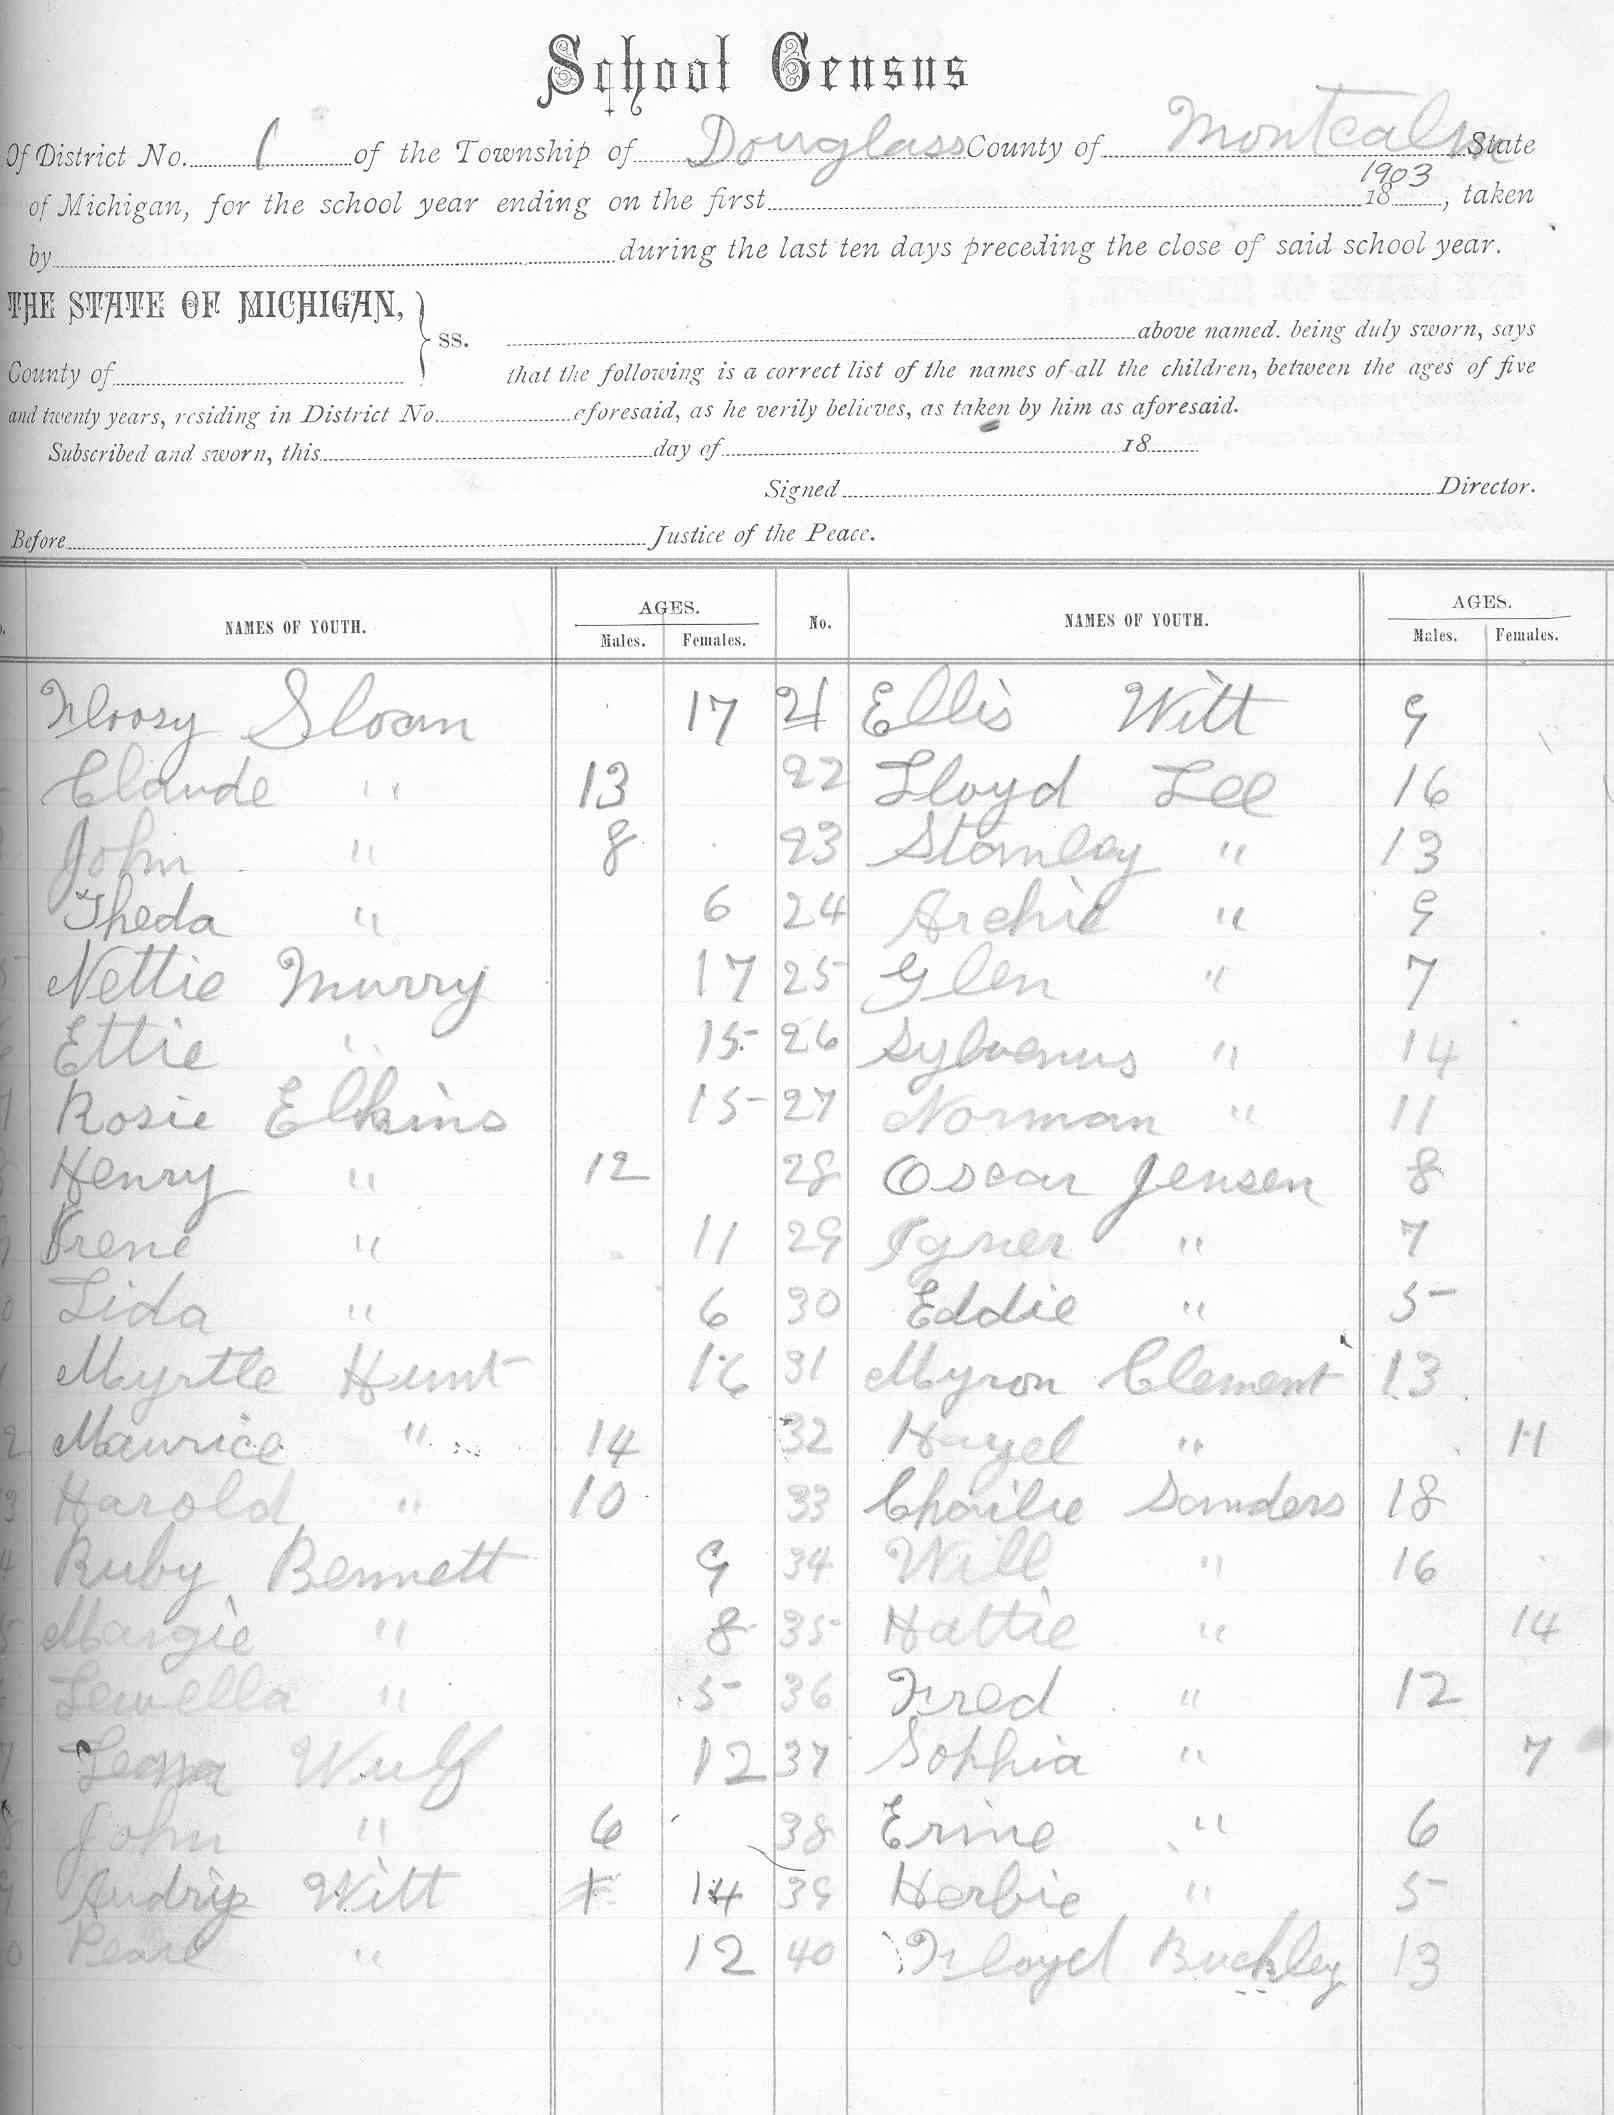 School Census
Of District No. 1 of the Township of Douglass County of Montcalm State
of Michigan, for the school year ending on the first 1903 18 , taken
by during the last ten days preceding the close of said school year.
THE STATE OF MICHIGAN, ss. above named. being duly sworn, says
County of that the following is a correct list of the names of all the children, between the ages of five
and twenty years, residing in District No. aforesaid, as he verily believes, as taken by him as aforesaid.
Subscribed and sworn, this day of 18
Signed Director.
Before Justice of the Peace.
NAMES OF YOUTH. AGES. Males. Females. No. NAMES OF YOUTH. AGES. Males. Females.
Floosy Sloan 17 21 Ellis Witt 9
Claude " 13 22 Lloyd Lee 16
John " 8 23 Stanley " 13
Theda " 6 24 Archie " 9
5 Nettie Murry 17 25 Glen " 7
6 Ettie " 15 26 Sylvenus " 14
7 Rosie Elkins 15 27 Norman " 11
Henry " 12 28 Oscar Jensen 8
9 Irene " 11 29 Igner " 7
0 Lida " 6 30 Eddie " 5
1 Myrtle Hunt 16 31 Myron Clement 13
2 Maurice " 14 32 Hazel " 11
3 Harold " 10 33 Charlie Sanders 18
4 Ruby Bennett 9 34 Will " 16
5 Margie " 8 35 Hattie " 14
Lewella " 5 36 Fred " 12
7 Wulf 12 37 Sophia " 7
8 John " 6 38 Erine " 6
9 Witt 14 39 Herbie " 5
0 Pearl " 12 40 Floyd Buckley 13